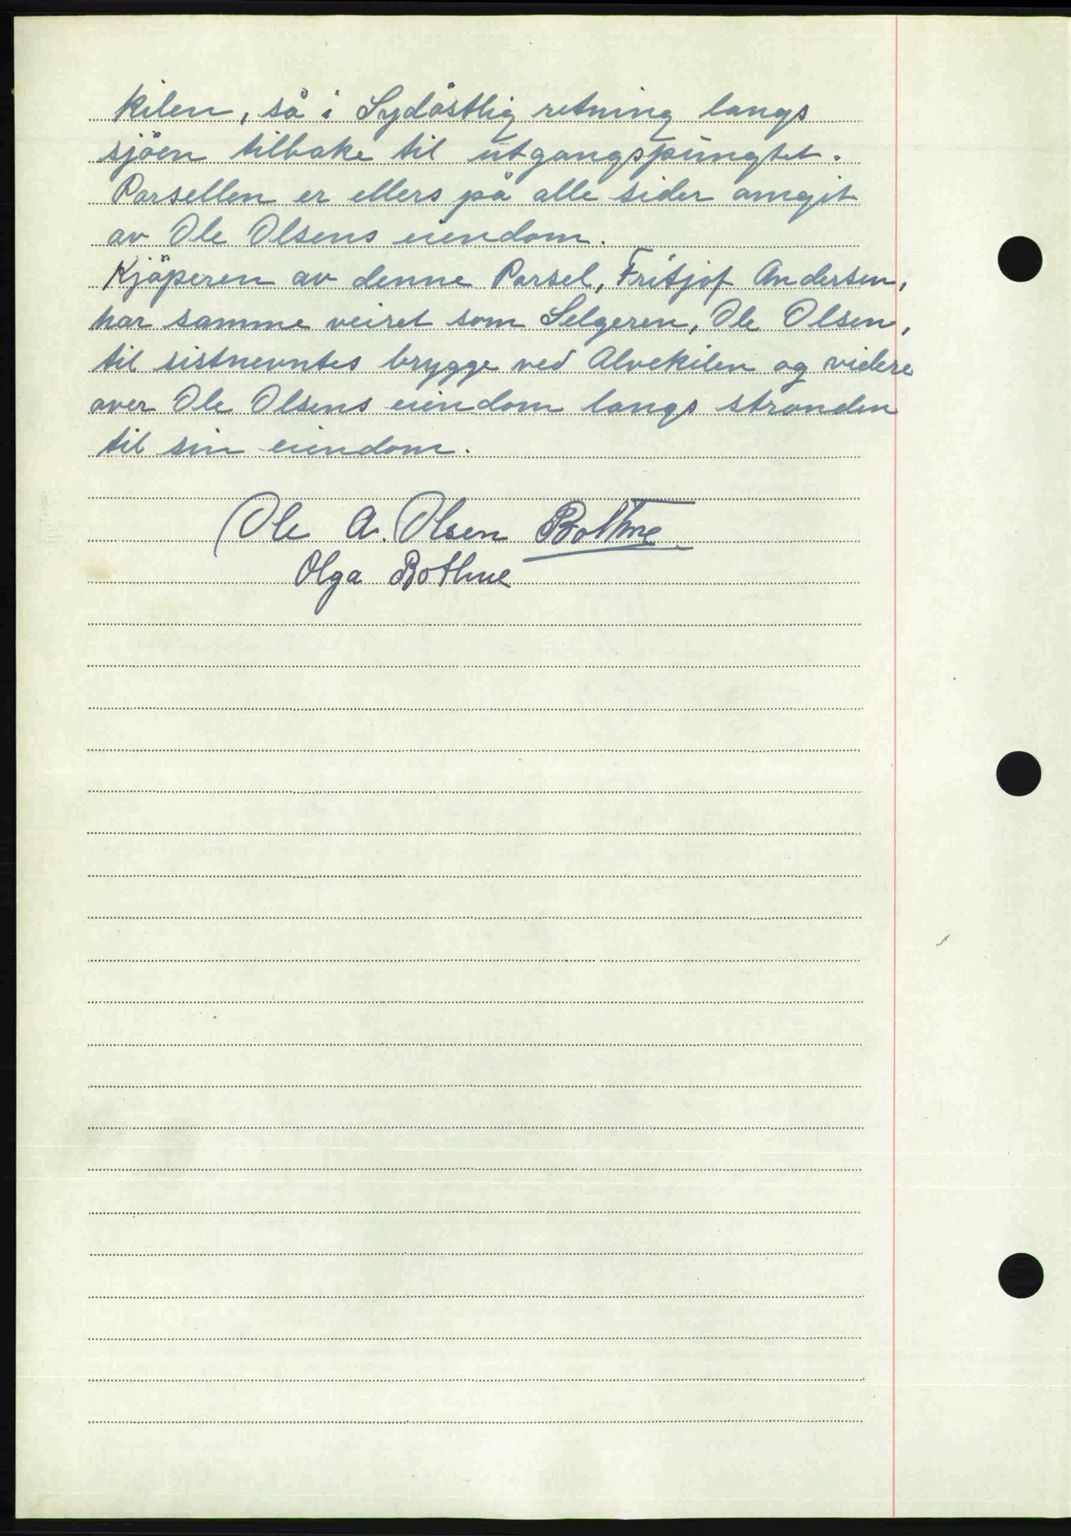 kilen, så i Sydöstlig retning langs
sjöen tilbake til utgangspungtet.
Parsellen er ellers på alle sider omgit
av Ole Olsens eiendom.
Kjöperen av denne Parsel, Fritjof Andersen,
har samme veiret som Selgeren, Ole Olsen,
til sistnevntes brygge ved Alvekilen og videre
over Ole Olsens eiendom langs stranden
til sin eiendom.
Ole A. Olsen Bothne
Olga Bothne